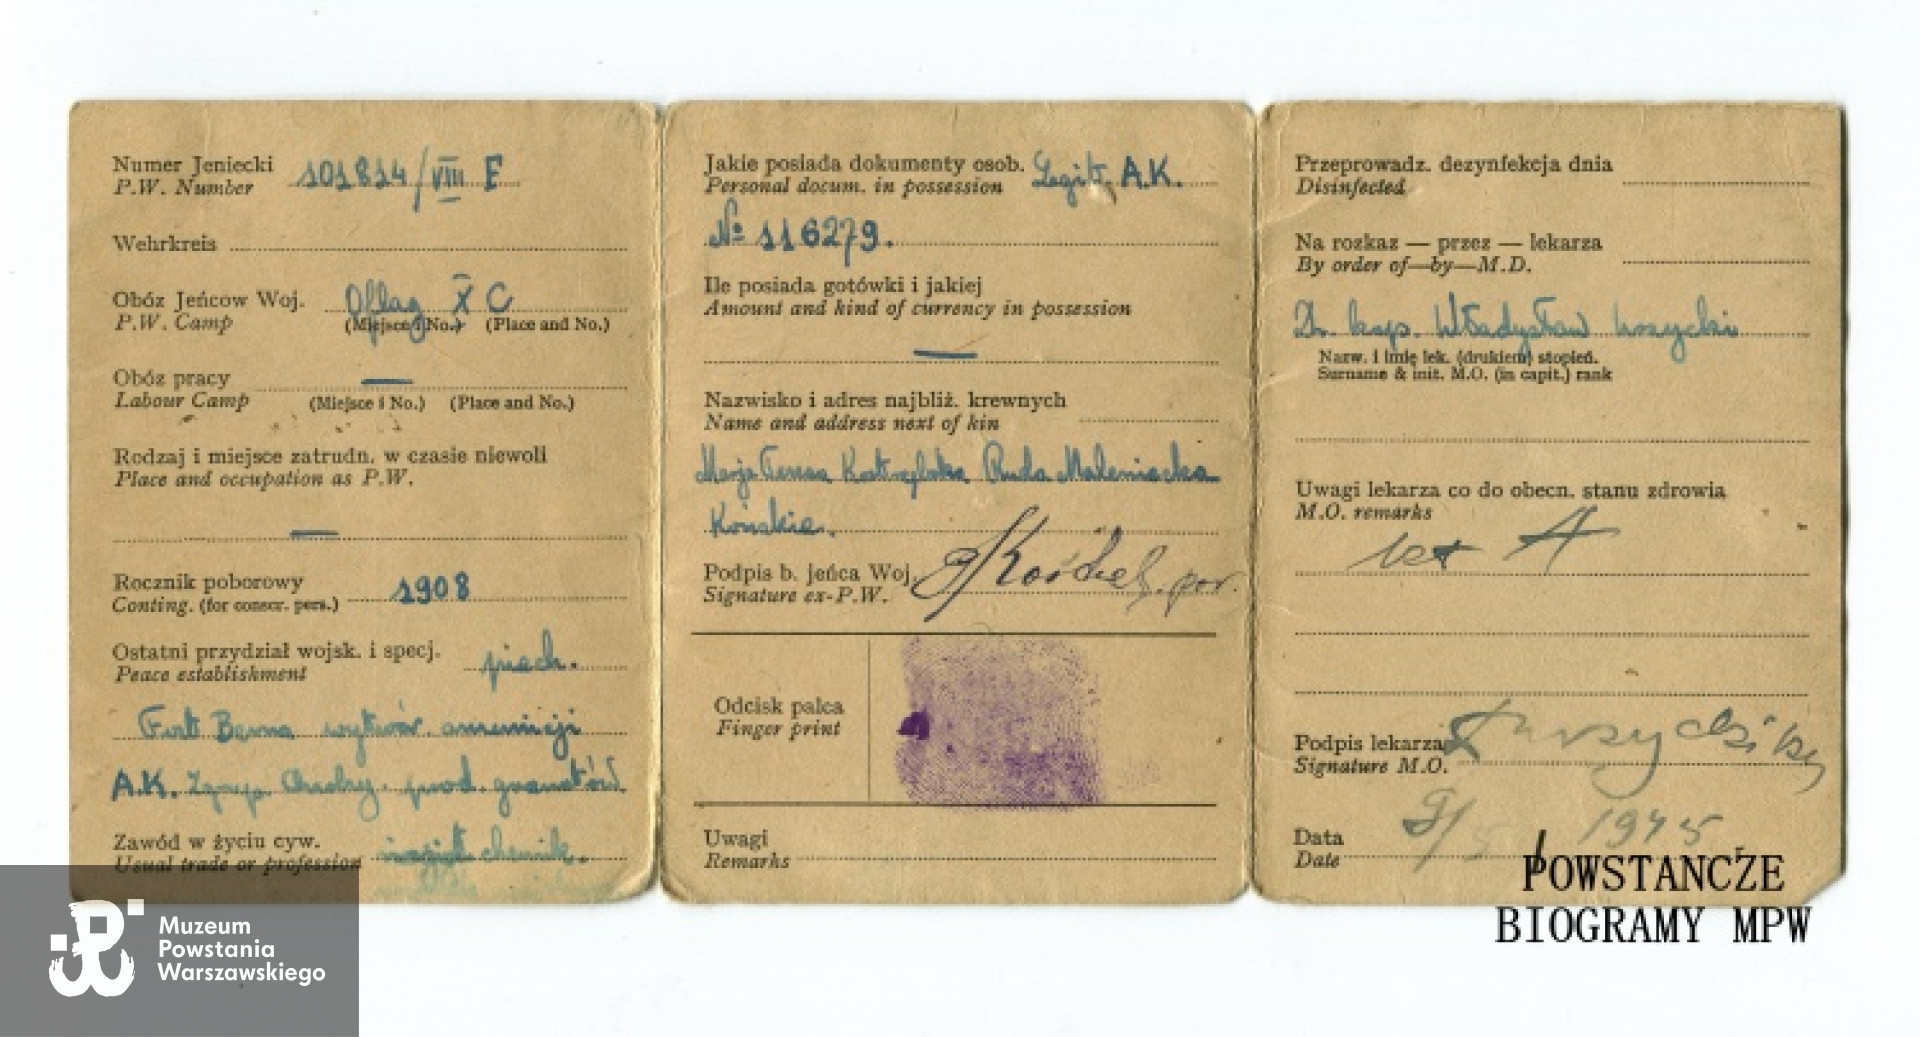 Numer Jeniecki 101814/VIII F
P.W. Number
Wehrkreis
Obóz Jeńcow Woj. Oflag X C
P.W. Camp (Miejsce i No.) (Place and No.)
Obóz pracy —
Labour Camp (Miejsce i No.) (Place and No.)
Rodzaj i miejsce zatrudn. w czasie niewoli
Place and occupation as P.W.
—
Rocznik poborowy 1908
Conting. (for conscr. pers.)
Ostatni przydział wojsk. i specj. piech.
Peace establishment
Fort Bema wytwór. amunicji
A.K. prod. granatów
Zawód w życiu cyw. chemik.
Usual trade or profession
Jakie posiada dokumenty osob. Legit. A.K.
Personal docum. in possession
№ 116279.
Ile posiada gotówki i jakiej
Amount and kind of currency in possession
—
Nazwisko i adres najbliż. krewnych
Name and address next of kin
Maria Teresa Ruda Maleniecka
Końskie.
Podpis b. jeńca Woj. por.
Signature ex-P.W.
Odcisk palca
Finger print
Uwagi
Remarks
Przeprowadz. dezynfekcja dnia
Disinfected
Na rozkaz — przez — lekarza
By order of—by—M.D.
Dr. kap. Władysław
Nazw. i imię lek. (drukiem) stopień.
Surname & init. M.O. (in capit.) rank
Uwagi lekarza co do obecn. stanu zdrowia
M.O. remarks
A
Podpis lekarza
Signature M.O.
Data 1945
Date
Muzeum
Powstania
Warszawskiego
POWSTAŃCZE
BIOGRAMY MPW